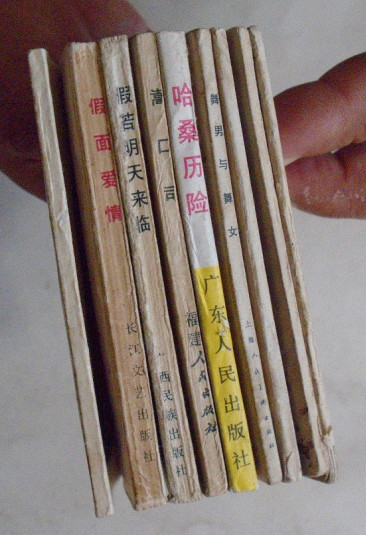 假面爱情
长江文艺出版社
假若明天来临
西民族出版社
嵩口司
福建人民出版社
哈桑历险
广东人民出版社
舞男与舞女
上海人民美术出版社